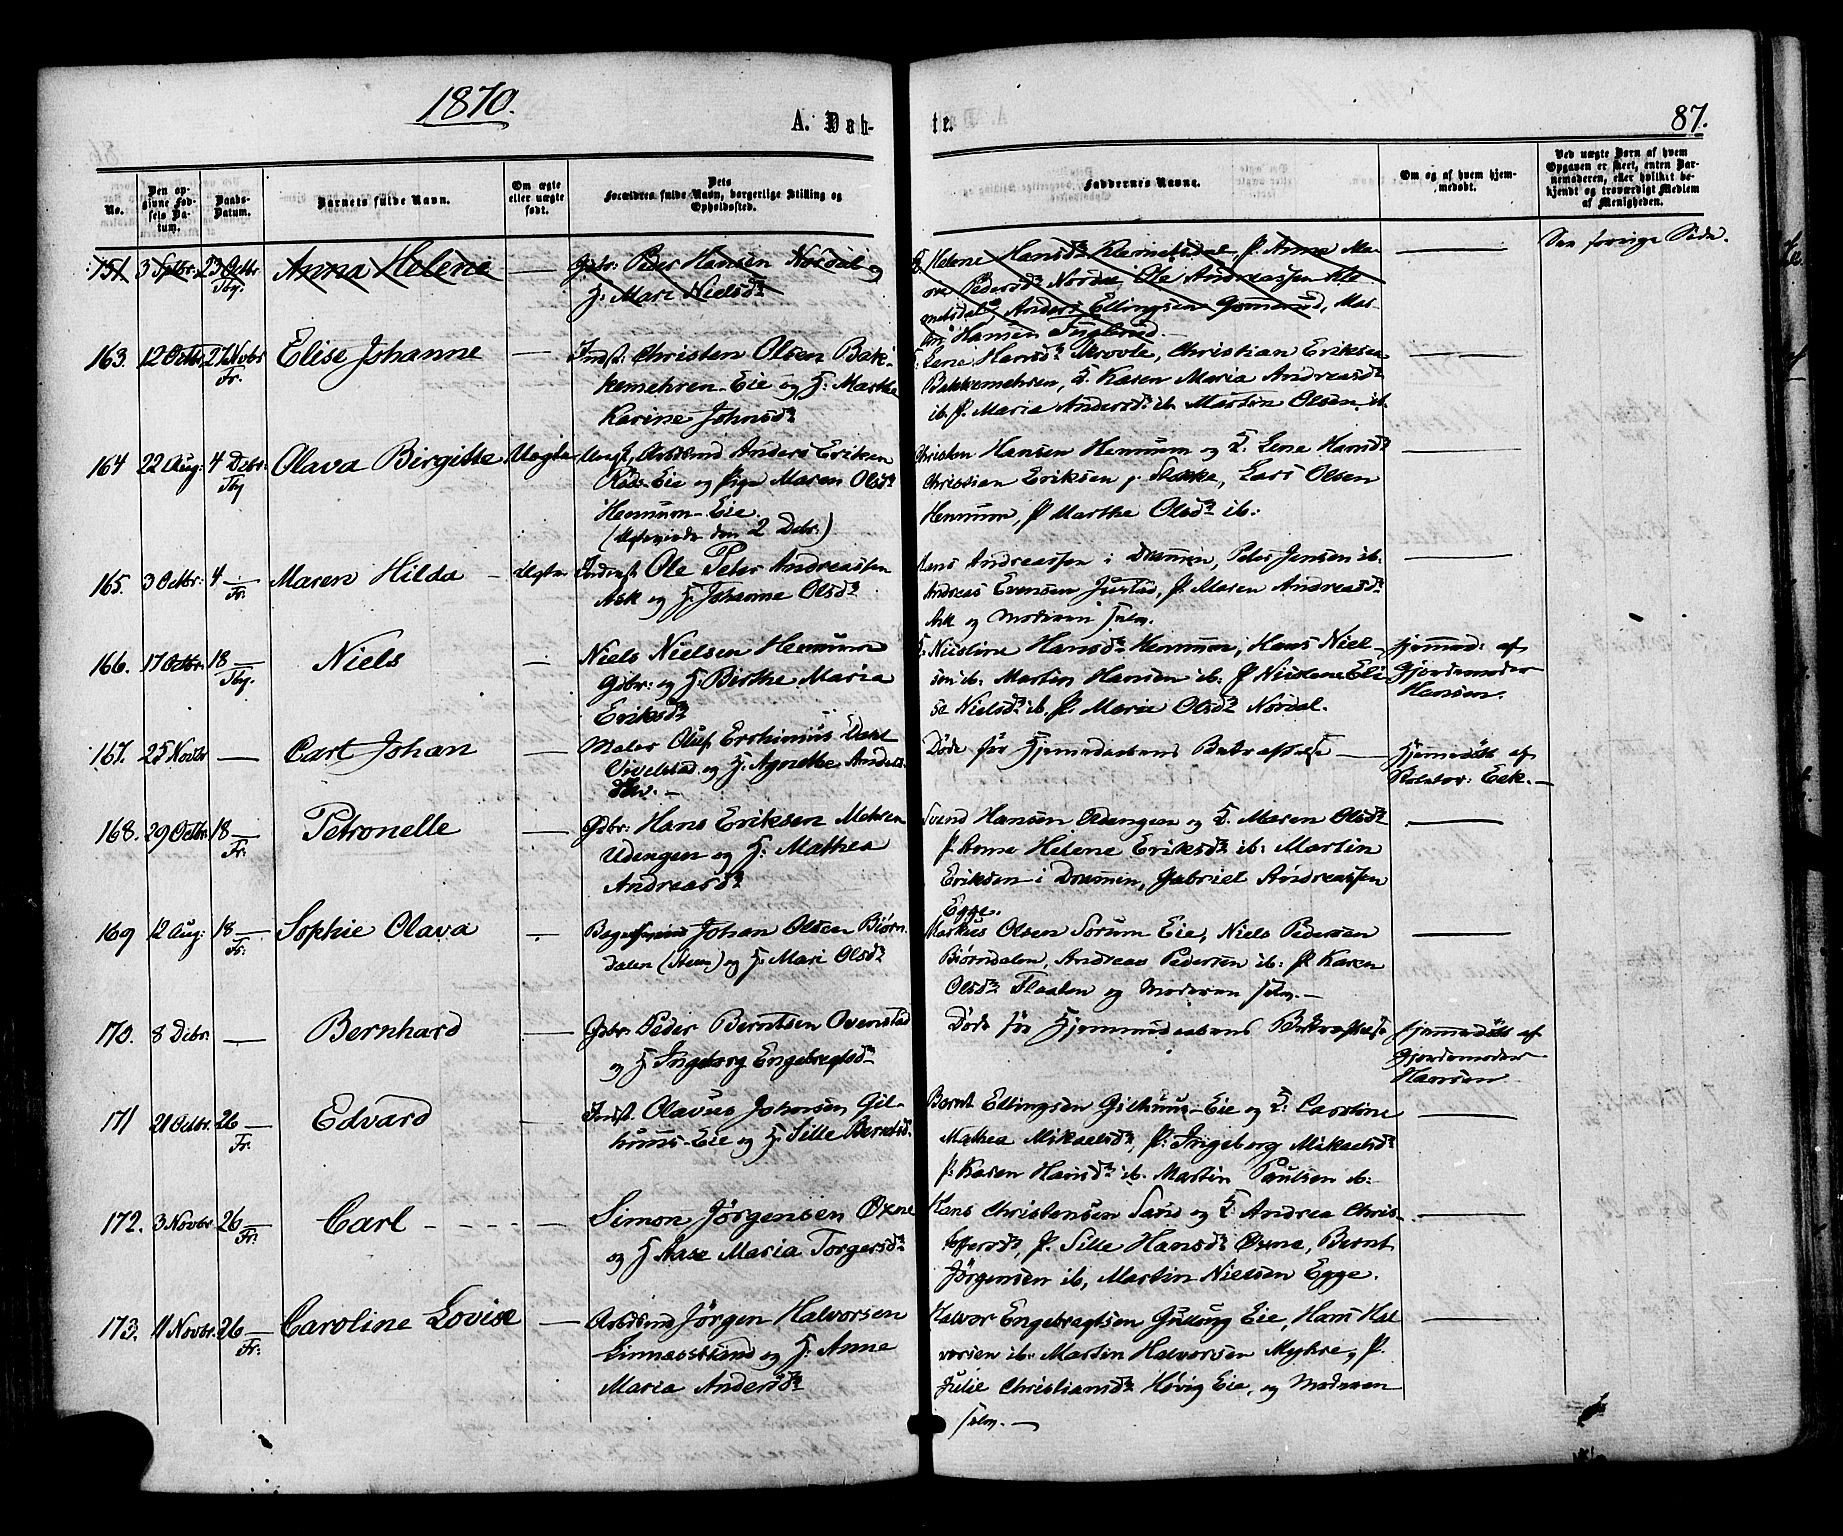 1870.
A. Døb-
te.
87.
No.
Den opgivne Fødsels Datum.
Daabs-Datum.
Barnets fulde Navn.
Om ægte eller uægte født.
Dets Forældres fulde Navn, borgerlige Stilling og Opholdssted.
Faddernes Navne.
Om og af hvem hjemmedøbt.
Ved uægte Børn af hvem Opgaven er skeet, enten Barnemoderen, eller hvilket bekjendt og troværdigt Medlem af Menigheden.
151 3 Sptbr. 23 Octbr Tby. Anna Helene
Gbr: Peder Hansen Nordal og
H: Mari Nielsd.
Helene Hansd. P. Anne Ma-
Pedersd. Nordal, Ole Andreassen
Anders Ellingsen Gomerud, Mar-
Hansen Fuglerud.
See forrige Side.
163. 12 Octbr. 27 Novbr Fr. Elise Johanne —
Indst: Christen Olsen Bak-
kemehren-Eie og H: Marthe
Karine Johnsd.
Lene Hansd. Skrovle, Christian Eriksen
Bakkemehren, K. Karen Maria Andreasd.
ib. P. Maria Andersd. ib. Martin Olsen ib.
164 22 Aug: 4 Debr: Tby Olava Birgitte Uægte
Ungk. Arbdsmd Anders Eriksen
Røds-Eie og Pige Maren Olsd.
Hennum-Eie.
(Udtoges den 2 Debr.)
Christen Hansen Hennum og K. Lene Hansd.
Christian Eriksen Stokke, Lars Olsen
Hennum, P. Marthe Olsd. ib:
165. 3 Octbr: 4 — Fr. Maren Hilda - Uægte
Ole Peter Andreassen
Ask og H: Johanne Olsd.
Hans Andreassen i Drammen, Peter Jensen ib:
Andreas Evensen Justad, P. Maren Andreasd.
Ask og Moderen selv.
166. 17 Octbr: 18 — Tby. Niels —
Niels Nielsen Hennum
Gbr: og H: Birthe Maria
Eriksd.
K. Nicoline Hansd. Hennum, Hans Niel-
sen ib: Martin Hansen ib: P. Nicolene Eli-
se Nielsd. ib, P. Maria Olsd. Nordal.
Hjemmed: af
Gjordemoder
Hansen.
167. 25 Novbr — Carl Johan —
Maler Oluf Erchinius Dahl
Vivelstad og H: Agnethe Anders-
dtr. -
Døde før Hjemmedaabens Bekræftelse —
Hjemmedøbt af
Eek. —
168. 29 Octbr: 18 — Fr. Petronelle —
Gbr: Hans Eriksen Mehren
Udengen og H: Mathea
Andreasd.
Svend Hansen Udengen og K. Maren Olsd.
P. Anne Helene Eriksd. ib: Martin
Eriksen i Drammen, Gabriel Andreassen
Egge.
169 12 Aug: 18 — Fr. Sophie Olava —
Johan Olsen Biørn-
dalen og H: Mari Olsd.
Markus Olsen Sørum Eie, Niels Pedersen
Biørndalen, Andreas Pedersen ib: P. Karen
Olsd. Flaalen og Moderen selv. -
170. 8 Debr: — Bernhard —
Gbr: Peder Berntsen Ovenstad
og H: Ingeborg Engebregtsd.
Døde før Hjemmedaabens Bekræftelse
Hjemmedøbt af
Gjordemoder
Hansen
171 21 Octbr. 26 — Fr. Edvard —
Indst. Olavus Johnsen, Gil-
huus-Eie og H: Sille Berntsd.
Bernt Ellingsen Gilhuus-Eie og K: Caroline
Mathea Mikaelsd. P: Ingeborg Mikaelsd.
P. Karen Hansd. ib. Martin Paulsen ib:
172. 3 Novbr 26 — Fr. Carl - - - - -
Simon Jørgensen Øxne
og H. Aase Maria Torgersd.
Hans Christensen Sand og K. Andrea Chris-
toffersd. P. Sille Hansd. Øxne, Bernt
Jørgensen ib, Martin Nielsen Egge.
173. 11 Novbr. 26 — Fr: Caroline Lovise —
Arbdsmd Jørgen Halvorsen
Linnæsstrand og H: Anne
Maria Andersd.
Halvor Engebragtsen Gullaug Eie, Hans Hal-
vorsen ib: Martin Halvorsen Myhre, P.
Julie Christiansd. Høvig Eie, og Moderen
selv. —